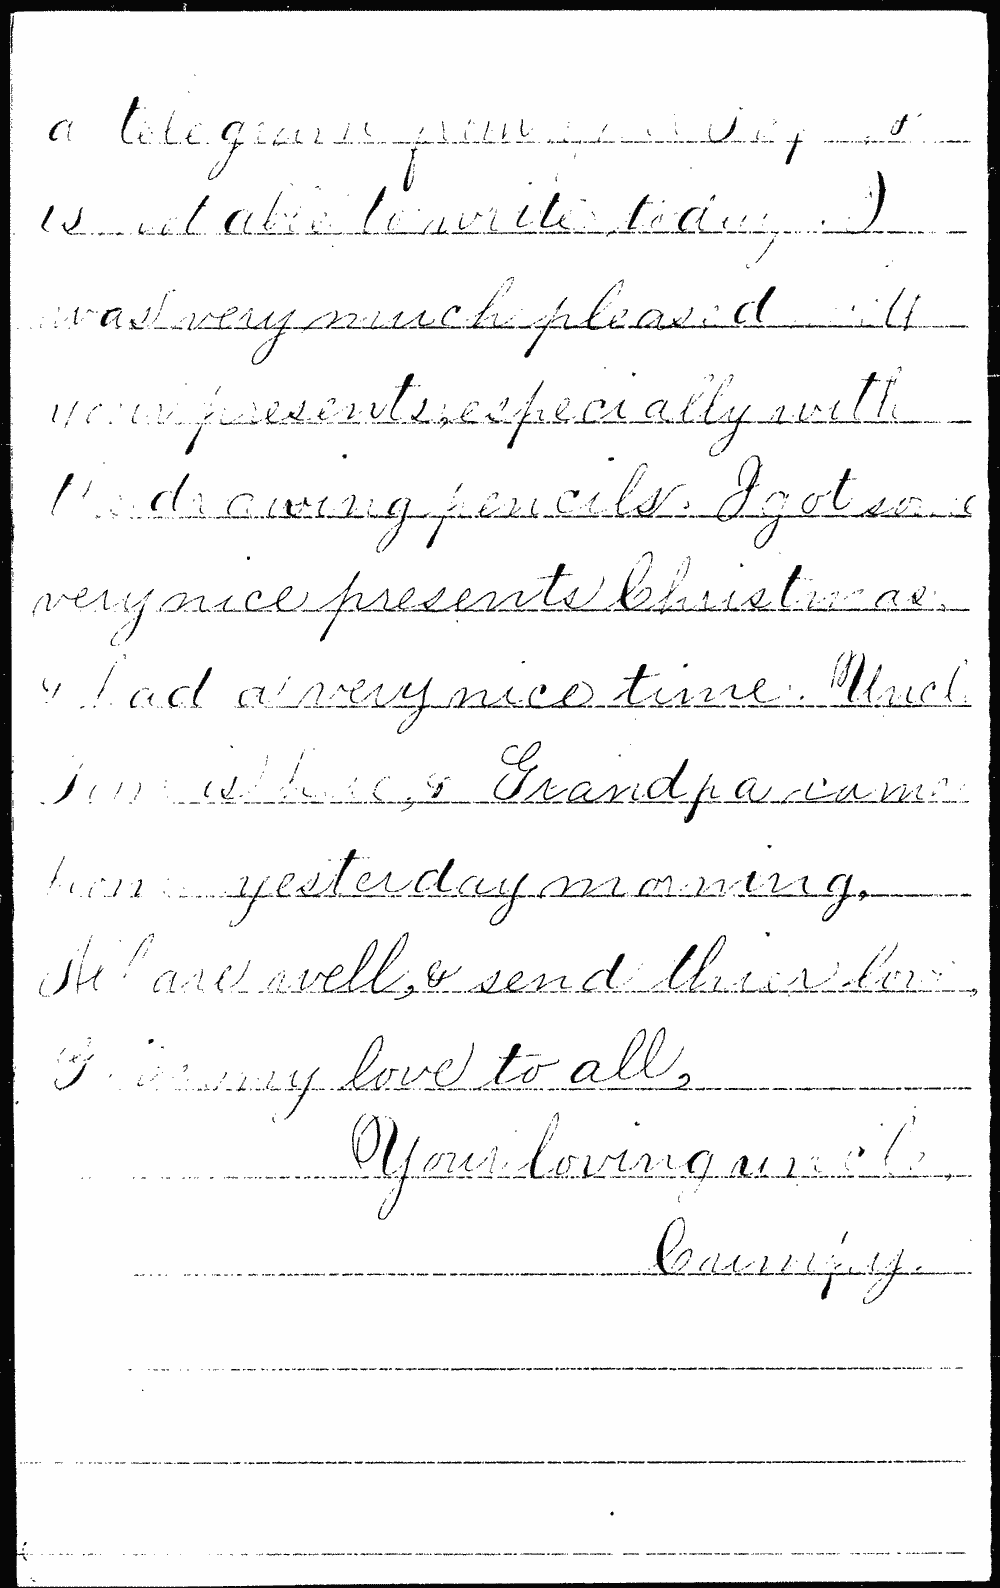 a telegram from
is not able to write today. I
was very much pleased with
your presents, especially with
the drawing pencils. I got some
very nice presents Christmas,
& had a very nice time. Uncle
is here, & Grandpa came
home yesterday morning,
All are well, & send thier love,
Give my love to all,
Your loving uncle,